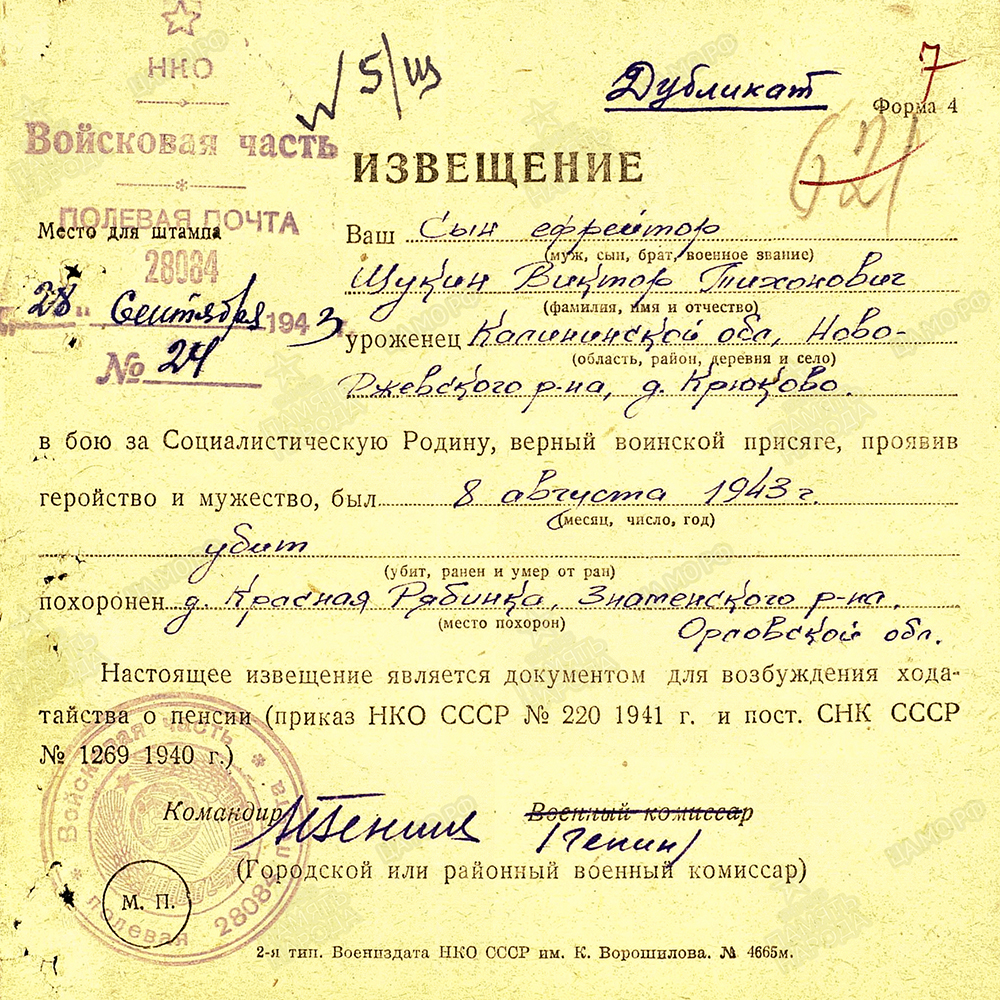 НКО
Войсковая часть
ПОЛЕВАЯ ПОЧТА
28084
5/
Дубликат
7
Форма 4
621
ИЗВЕЩЕНИЕ
Место для штампа
28 Сентября 1943
№ 24
Ваш Сын ефрейтор
(муж, сын, брат, военное звание)
Щукин Виктор Тихонович
(фамилия, имя и отчество)
уроженец Калининской обл, Ново-
(область, район, деревня и село)
Ржевского р-на, д. Крюково.
в бою за Социалистическую Родину, верный воинской присяге, проявив
геройство и мужество, был 8 августа 1943 г.
(месяц, число, год)
убит
(убит, ранен и умер от ран)
похоронен д. Красная Рябинка, Знаменского р-на.
(место похорон)
Орловской обл.
Настоящее извещение является документом для возбуждения хода-
тайства о пенсии (приказ НКО СССР № 220 1941 г. и пост. СНК СССР
№ 1269 1940 г.)
Командир
Военный комиссар
(Городской или районный военный комиссар)
М. П.
Войсковая часть
полевая 28084
2-я тип. Воениздата НКО СССР им. К. Ворошилова. № 4665м.